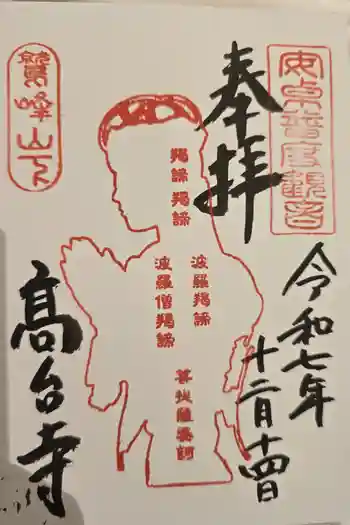 奉拝
令和七年
十二月十四日
鷲峰山下
羯諦羯諦
波羅羯諦
波羅僧羯諦
菩提薩婆訶
高台寺